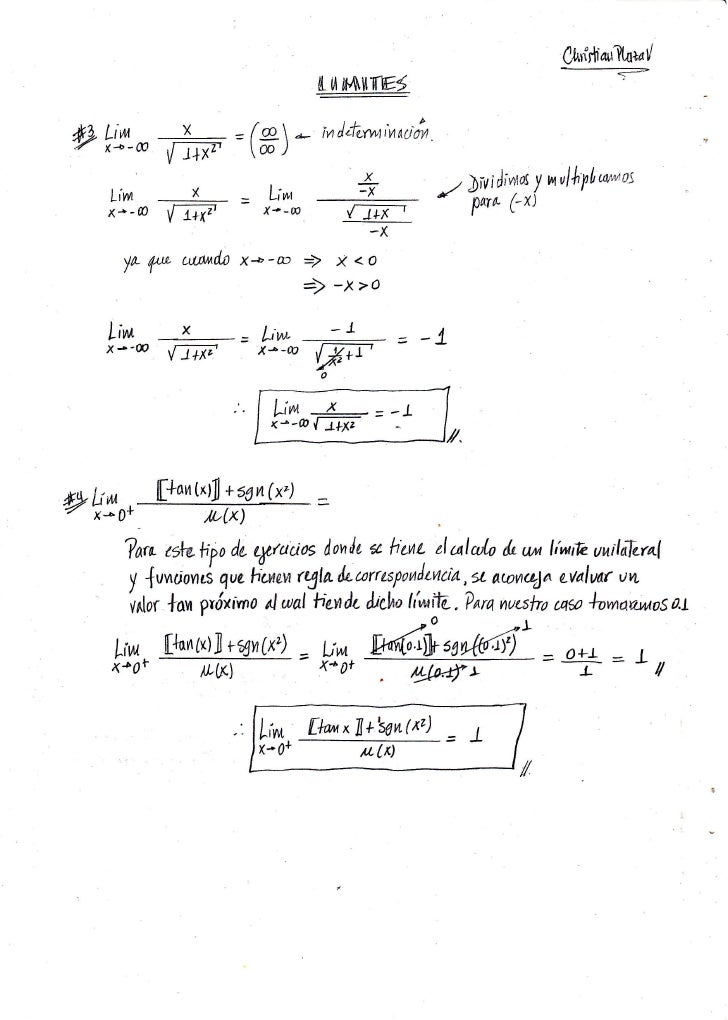 Christian Plaza V
LIMITES
#3 Lim x→-∞ x/√(1+x²) = (∞/∞) ← indeterminación.
Lim x→-∞ x/√(1+x²) = Lim x→-∞ (x/-x)/(√(1+x)/-x) ← Dividimos y multiplicamos para (-x)
ya que cuando x→-∞ ⇒ x < 0
⇒ -x > 0
Lim x→-∞ x/√(1+x²) = Lim x→-∞ -1/√(1/x²+1) = -1
0
∴ Lim x→-∞ x/√(1+x²) = -1 //.
#4 Lim x→0⁺ ([[tan(x)]] + sgn(x²))/μ(x) =
Para este tipo de ejercicios donde se tiene el calculo de un límite unilateral
y funciones que tienen regla de correspondencia, se aconceja evaluar un
valor tan próximo al cual tiende dicho límite. Para nuestro caso tomaremos 0.1
0 1
Lim x→0⁺ ([[tan(x)]] + sgn(x²))/μ(x) = Lim x→0⁺ ([[tan(0.1)]] + sgn((0.1)²))/μ(0.1) 1 = (0+1)/1 = 1 //
∴ Lim x→0⁺ ([[tan x]] + sgn(x²))/μ(x) = 1 //.